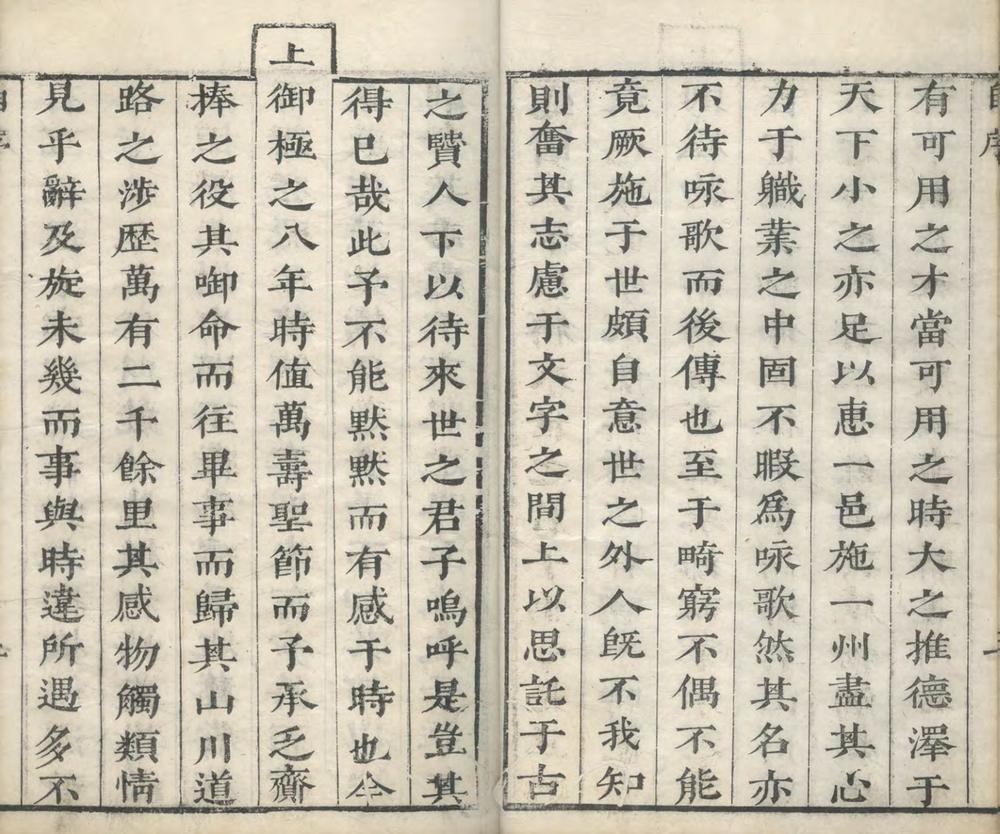 有可用之才當可用之時大之推德澤于
天下小之亦足以惠一邑施一州盡其心
力于職業之中固不暇爲咏歌然其名亦
不待咏歌而後傳也至于畸窮不偶不能
竟厥施于世頗自意世之外人旣不我知
則奮其志慮于文字之間上以思託于古
之賢人下以待來世之君子嗚呼是豈其
得已哉此予不能默默而有感于時也今
上
御極之八年時值萬壽聖節而予承乏齎
捧之役其啣命而往畢事而歸其山川道
路之涉歷萬有二千餘里其感物觸類情
見乎辭及旋未幾而事與時違所遇多不